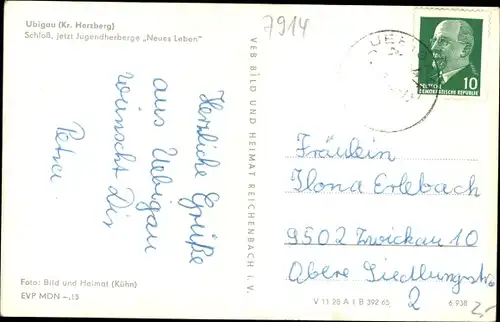 Ubigau (Kr. Herzberg)
Schloß, jetzt Jugendherberge „Neues Leben"
7914
Herzliche Grüße
aus Uebigau
wünscht Dir
Petra
VEB BILD UND HEIMAT REICHENBACH i. V.
10
DEUTSCHE
DEMOKRATISCHE REPUBLIK
Fräulein
Ilona Erlebach
9502 Zwickau 10
Obere Siedlungstr.
2
Foto: Bild und Heimat (Kühn)
EVP MDN –,15
V 11 28 A 1 B 392 65
6 938